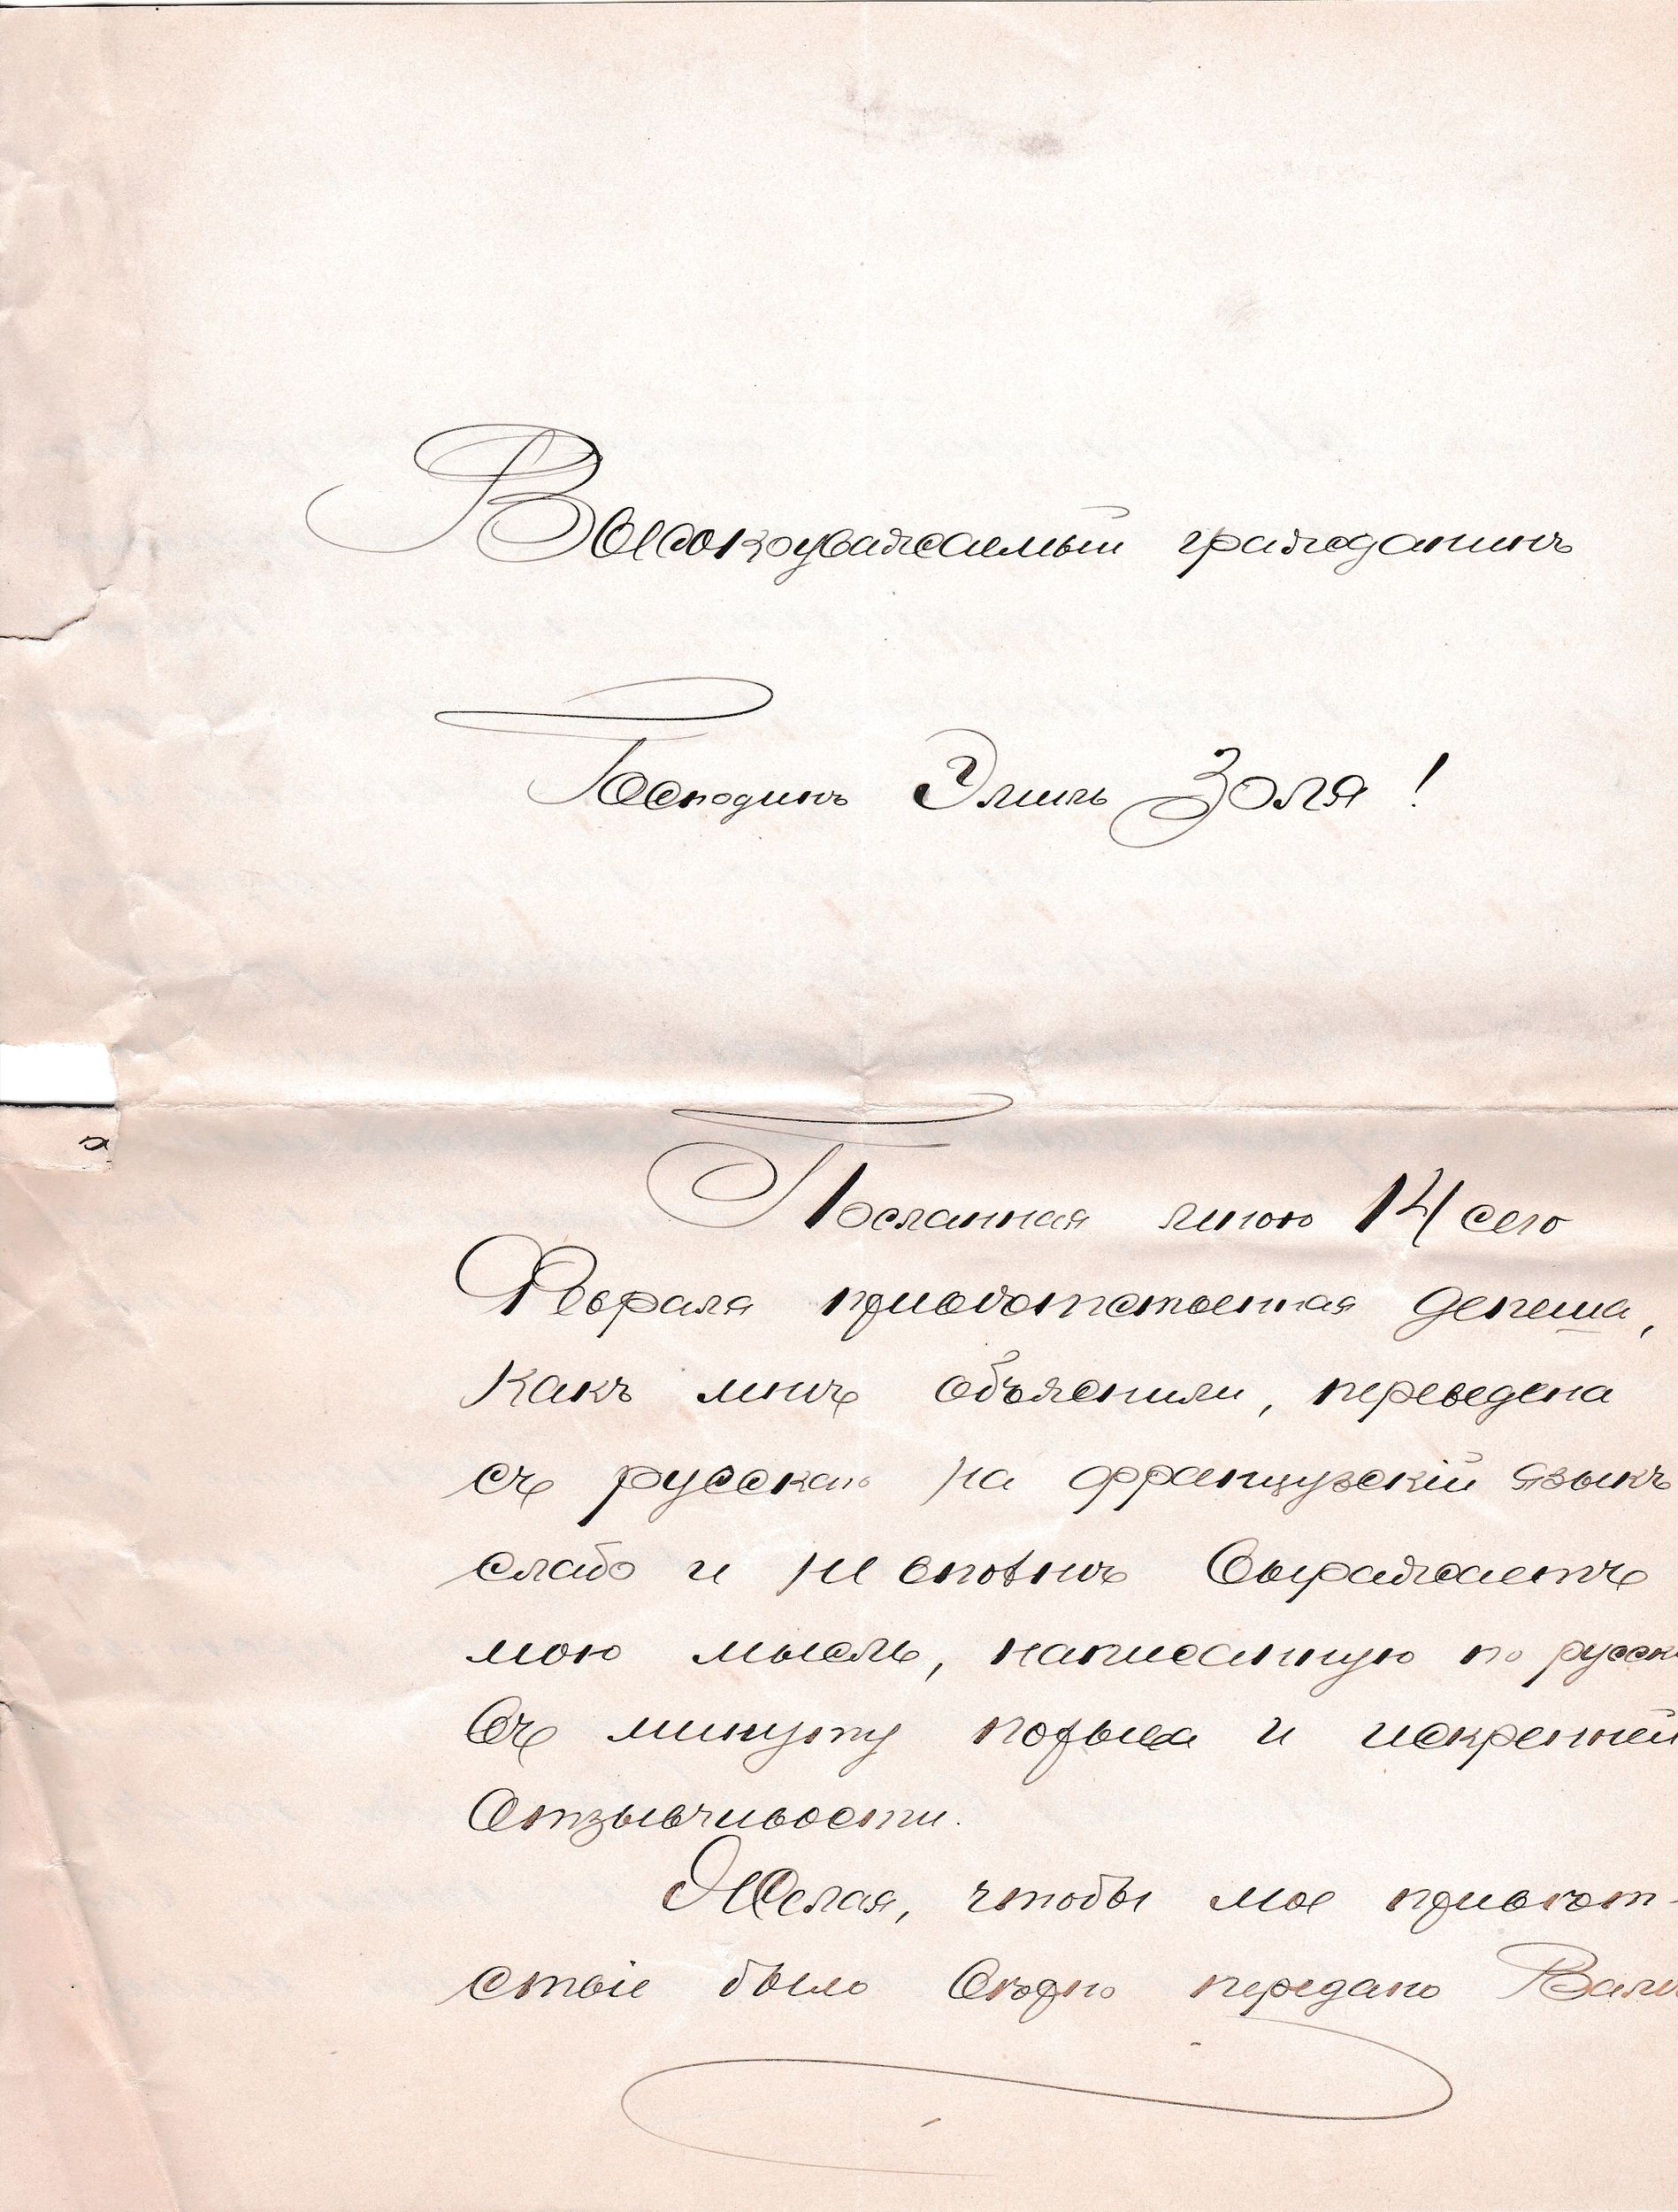 Высокоуважаемый гражданинъ
Господинъ Эмиль Золя!
Посланная мною 14 сего
Февраля привѣтственная депеша,
какъ мнѣ объяснили, переведена
съ русскаго на французскій языкъ
слабо и не вполнѣ выражаетъ
мою мысль, написанную по русск
въ минуту порыва и искренней
отзывчивости.
Желая, чтобы мое привѣт-
ствіе было вѣрно передано Вамъ